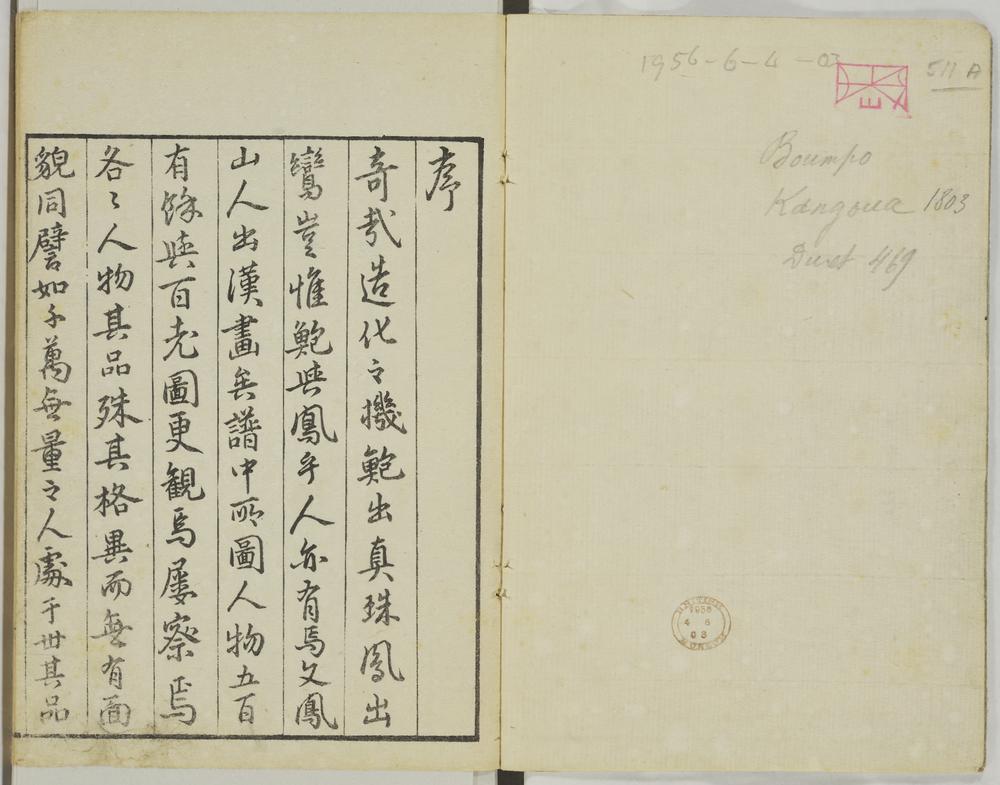 1956-6-4-03
511 A
E
Boumpo
Kangoua 1803
Duret 469
1956
4 6
03
序
奇哉造化之機鮑出真珠鳳出
鸞豈惟鮑與鳳乎人亦有焉文鳳
山人出漢畫矣譜中所圖人物五百
有餘與百老圖更観焉屡察焉
各〻人物其品殊其格異而無有面
貌同譬如千萬無量之人處于世其品